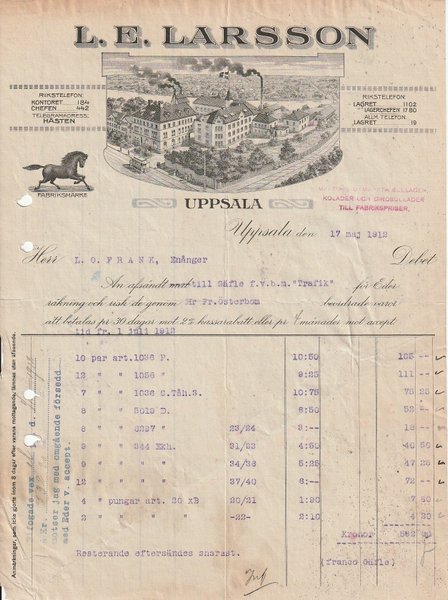 L. E. LARSSON
RIKSTELEFON:
KONTORET 184
CHEFEN 442
TELEGRAMADRESS:
HÄSTEN
RIKSTELEFON:
LAGRET 1102
LAGERCHEFEN 1780
ALLM. TELEFON.
LAGRET 19
FABRIKSMÄRKE
UPPSALA
KOLADER OCH GIROBULLADER
TILL FABRIKSPRISER.
Uppsala den 17 maj 1912
Herr L. O. FRANK, Enånger Debet
An afsändt till Gäfle f.v.b.m. "Trafik" för Eder
räkning och risk de genom Hr Fr. Österbom beordrade varor
att betalas pr 30 dagar mot 2% kassarabatt eller pr månaders mot accept
tid fr. 1 juli 1912
10 par art. 1036 P. 10:50 105 --
12 " " 1056 " 9:25 111 --
7 " " 1036 S.Tåh.S. 10:75 75 25
8 " " 5019 D. 52 --
8 " " 23/24
9 " " 344 Ekh. 31/33 4:50 40 50
9 " " " " 34/36 5:25
12 " " " " 37/40 6:-- 72 --
4 " pungar art. 20 xB 20/21 1:90 7 60
2 " " " " -22- 2:10 4 20
Kronor
Resterande eftersändes snarast. (franco Gäfle)
motser jag med omgående försedd
med Eder v. accept.
Anmärkningar, som icke gjorts inom 8 dagar efter varans mottagande, lämnas utan afseende.